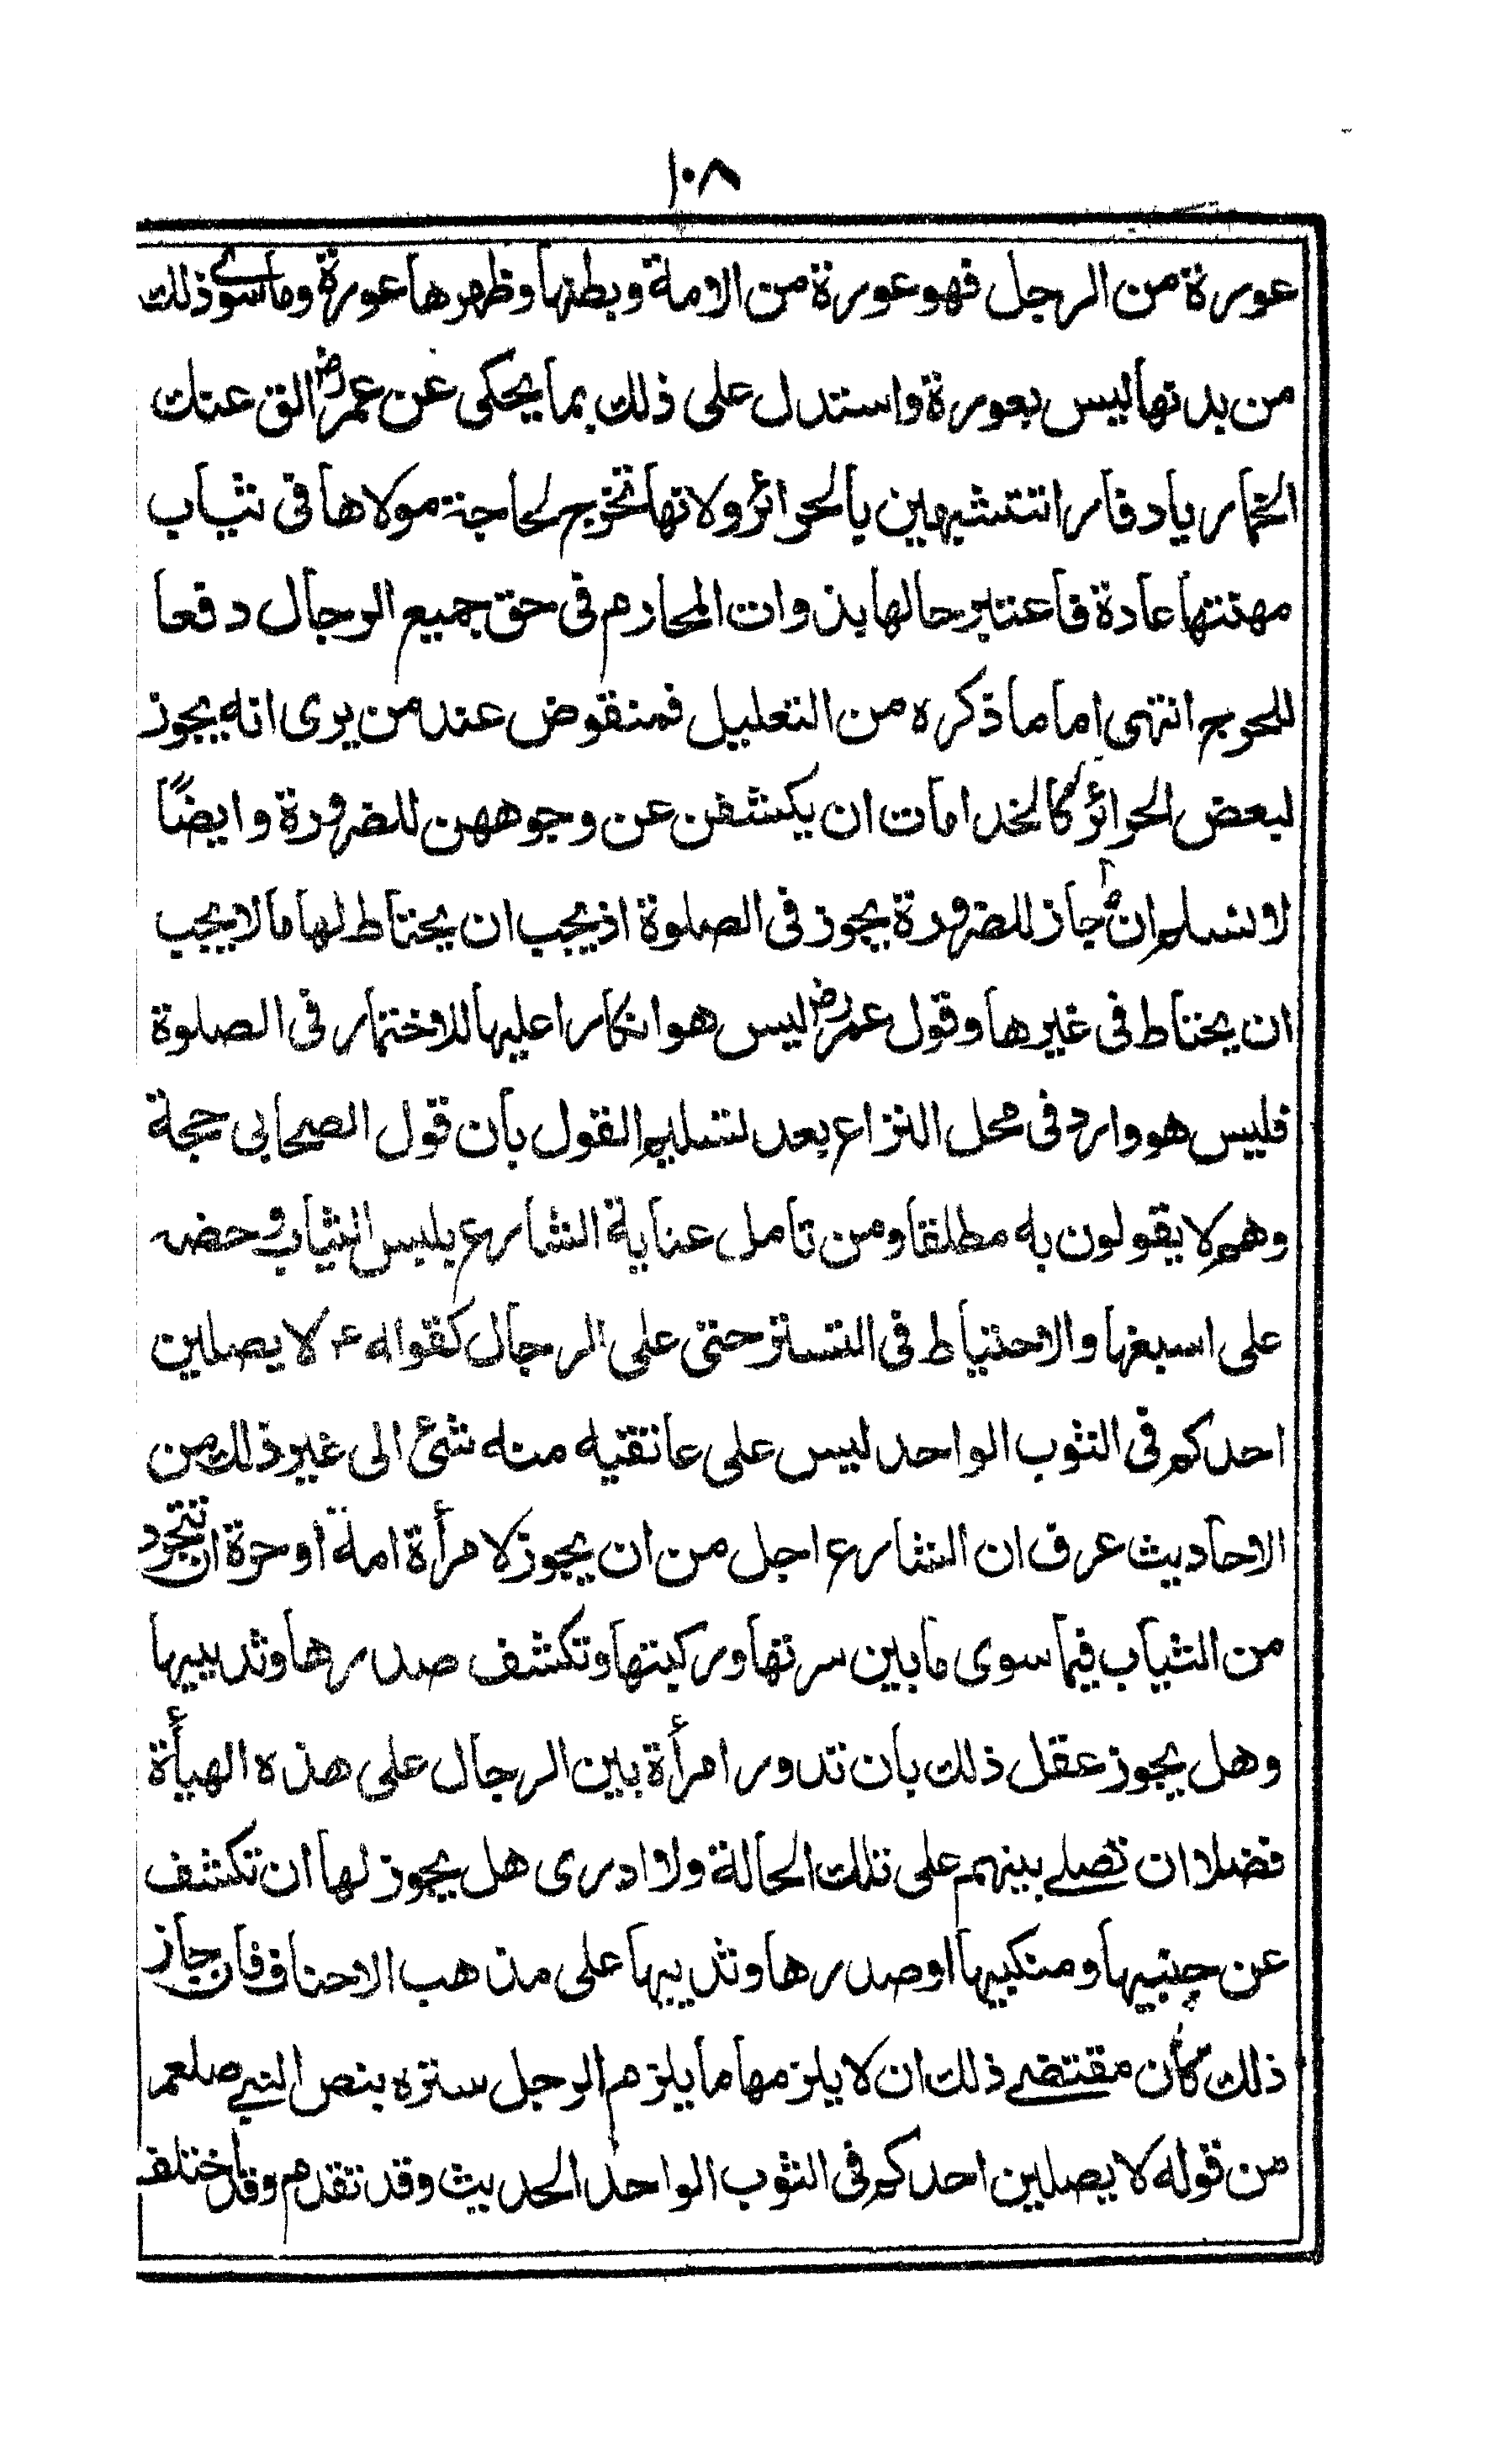 ١٠٨
عورة من الرجل فهو عورة من الامة وبطنها وظهرها عورة وما سوى ذلك
من بدنها ليس بعورة واستدل على ذلك بما يحكى عن عمر رض الق عنك
الخمار يا دفار اتتشبهين بالحرائر ولانها تخرج لحاجة مولاها فى ثياب
مهنتها عادة فاعتبر حالها بذوات المحارم فى حق جميع الرجال دفعا
للحرج انتهى اما ما ذكره من التعليل فمنقوض عند من يرى انه يجوز
لبعض الحرائر كالخدامات ان يكشفن عن وجوههن للضرورة وايضًا
لا نسلم ان ما جاز للضرورة يجوز فى الصلوة اذ يجب ان يحتاط لها مالا يجب
ان يحتاط فى غيرها وقول عمر رض ليس هو انكارا عليها للاختمار فى الصلوة
فليس هو وارد فى محل النزاع بعد تسليم القول بان قول الصحابى حجة
وهم لا يقولون به مطلقا ومن تامل عناية الشارع بلبس الثياب وحضه
على اسبغها والاحتياط فى التستر حتى على الرجال كقواله ع لا يصلين
احدكم فى الثوب الواحد ليس على عاتقيه منه شئ الى غير ذلك من
الاحاديث عرف ان الشارع اجل من ان يجوز لامرأة امة او حرة ان تتجرد
من الثياب فيما سوى ما بين سرتها وركبتها وتكشف صدرها وثدييها
وهل يجوز عقل ذلك بان تدور امرأة بين الرجال على هذه الهيأة
فضلا ان تصلے بينهم على تلك الحالة ولا ادرى هل يجوز لها ان تكشف
عن جنبيها ومنكبيها او صدرها وثدييها على مذهب الاحناف فان جاز
ذلك كان مقتضے ذلك ان لا يلزمها ما يلزم الرجل ستره بنص النبے صلعم
من قوله لا يصلين احدكم فى الثوب الواحد الحديث وقد تقدم وقد اختلف